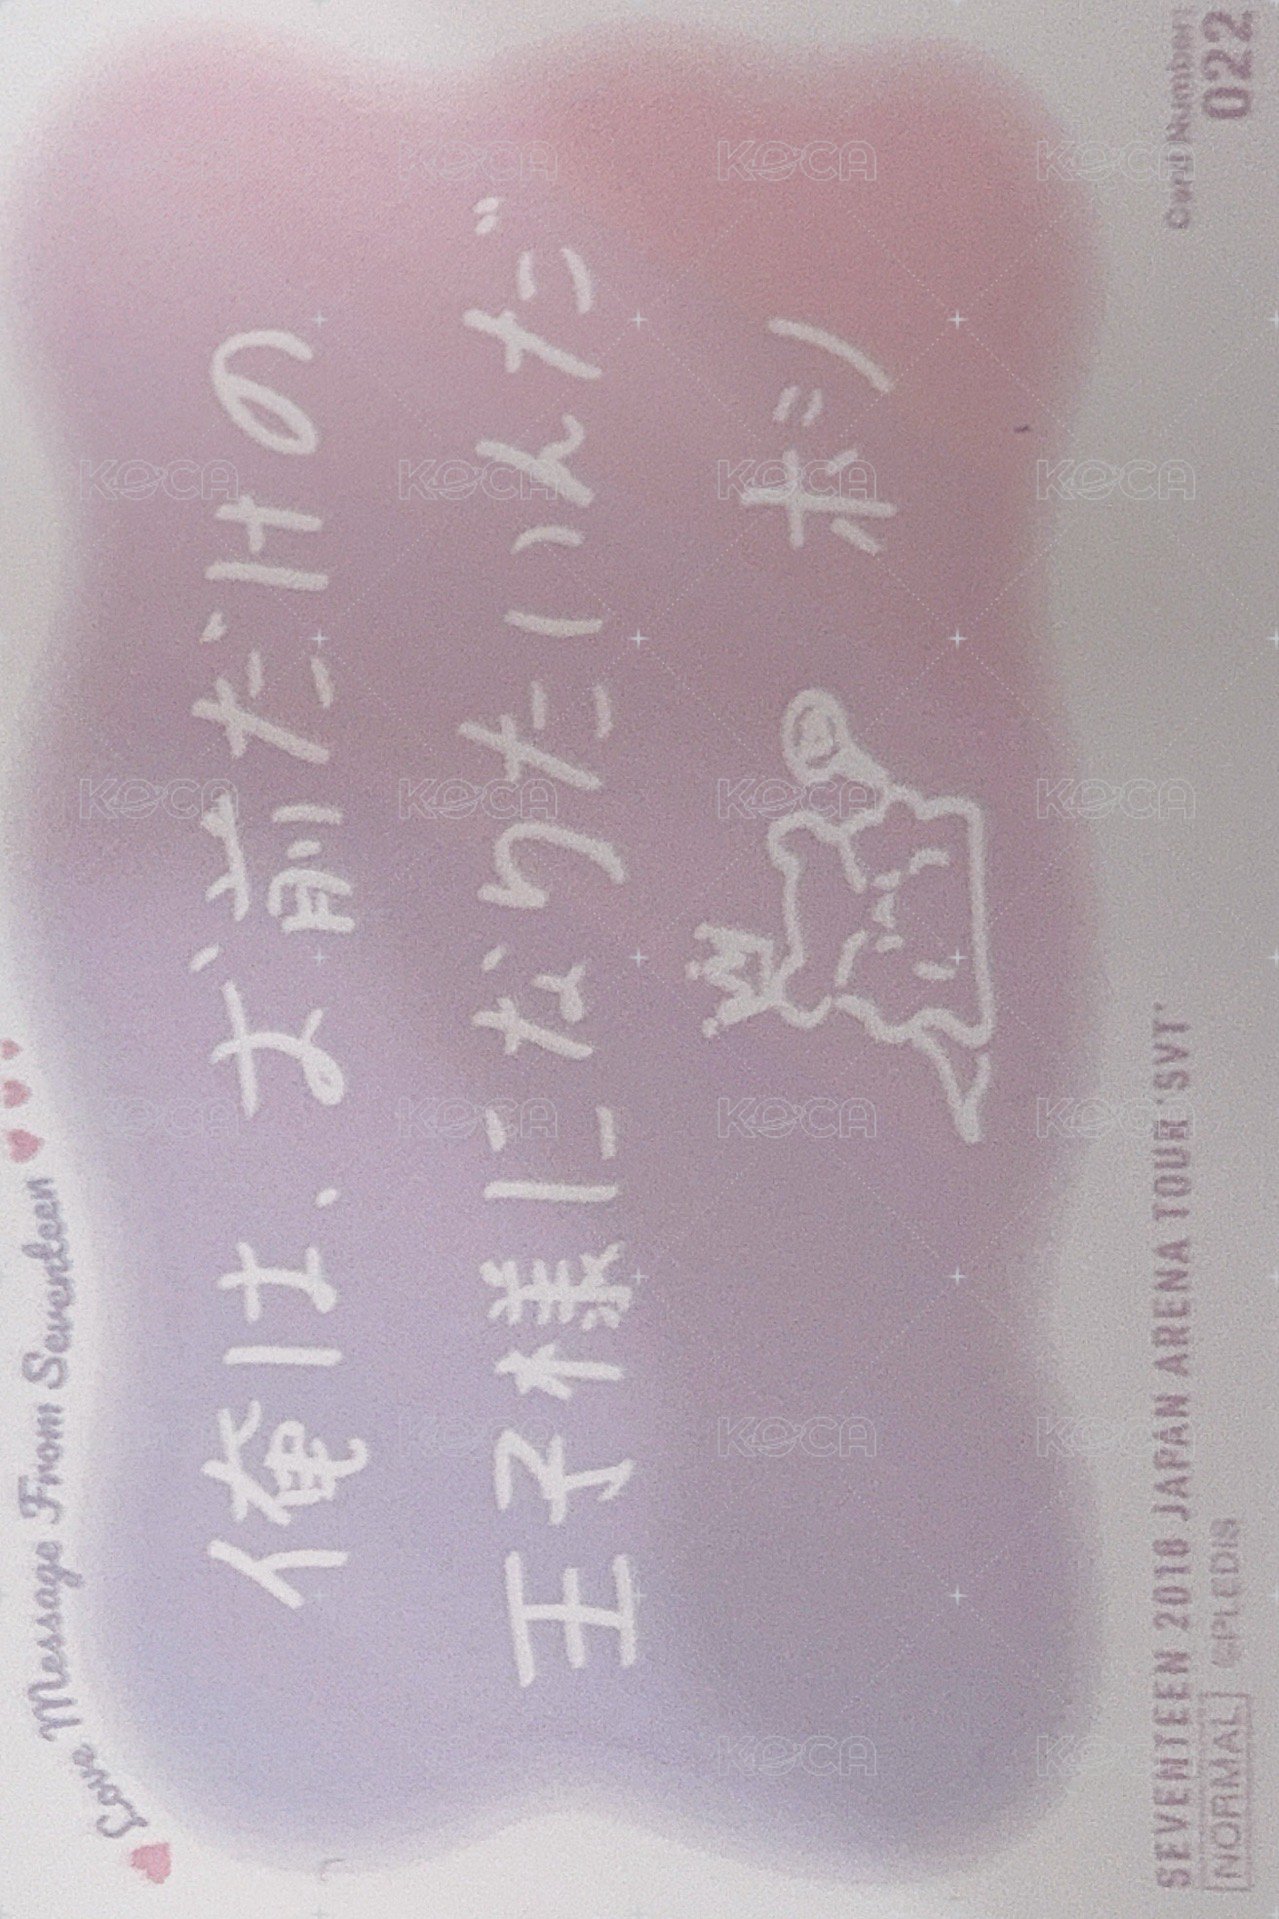 Love Message From Seventeen
俺は、お前だけの
王子様になりたいんだ"
ホニノ
SEVENTEEN 2018 JAPAN ARENA TOUR 'SVT'
NORMAL ©PLEDIS
Card Number
022
KOCA